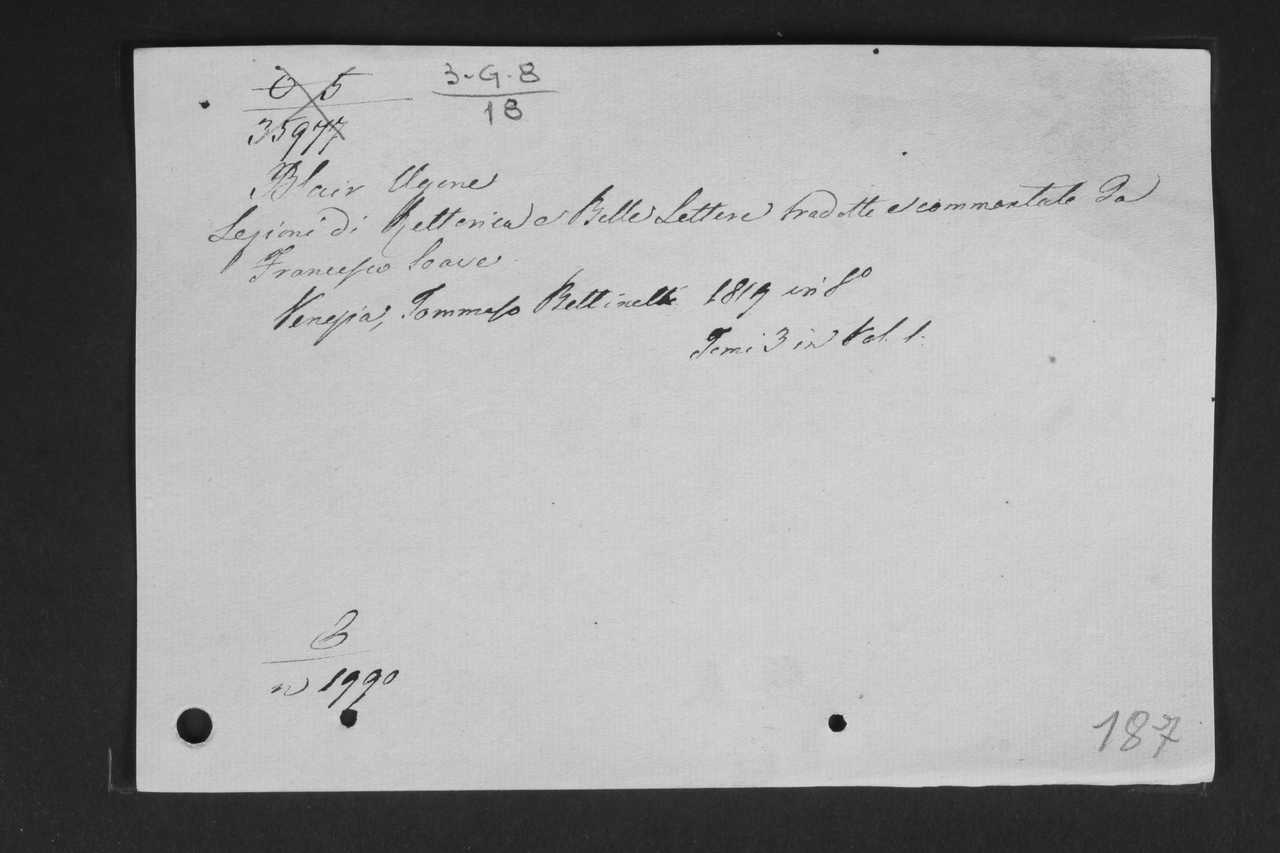 O 5
35977
3-G-8
18
Blair Ugone
Lezioni di Rettorica e Belle Lettere tradotte e commentate da
Francesco Soave
Venezia, Tommaso Bettinelli 1819 in 8º
Tomi 3 in Vol. 1.
n 1990
187